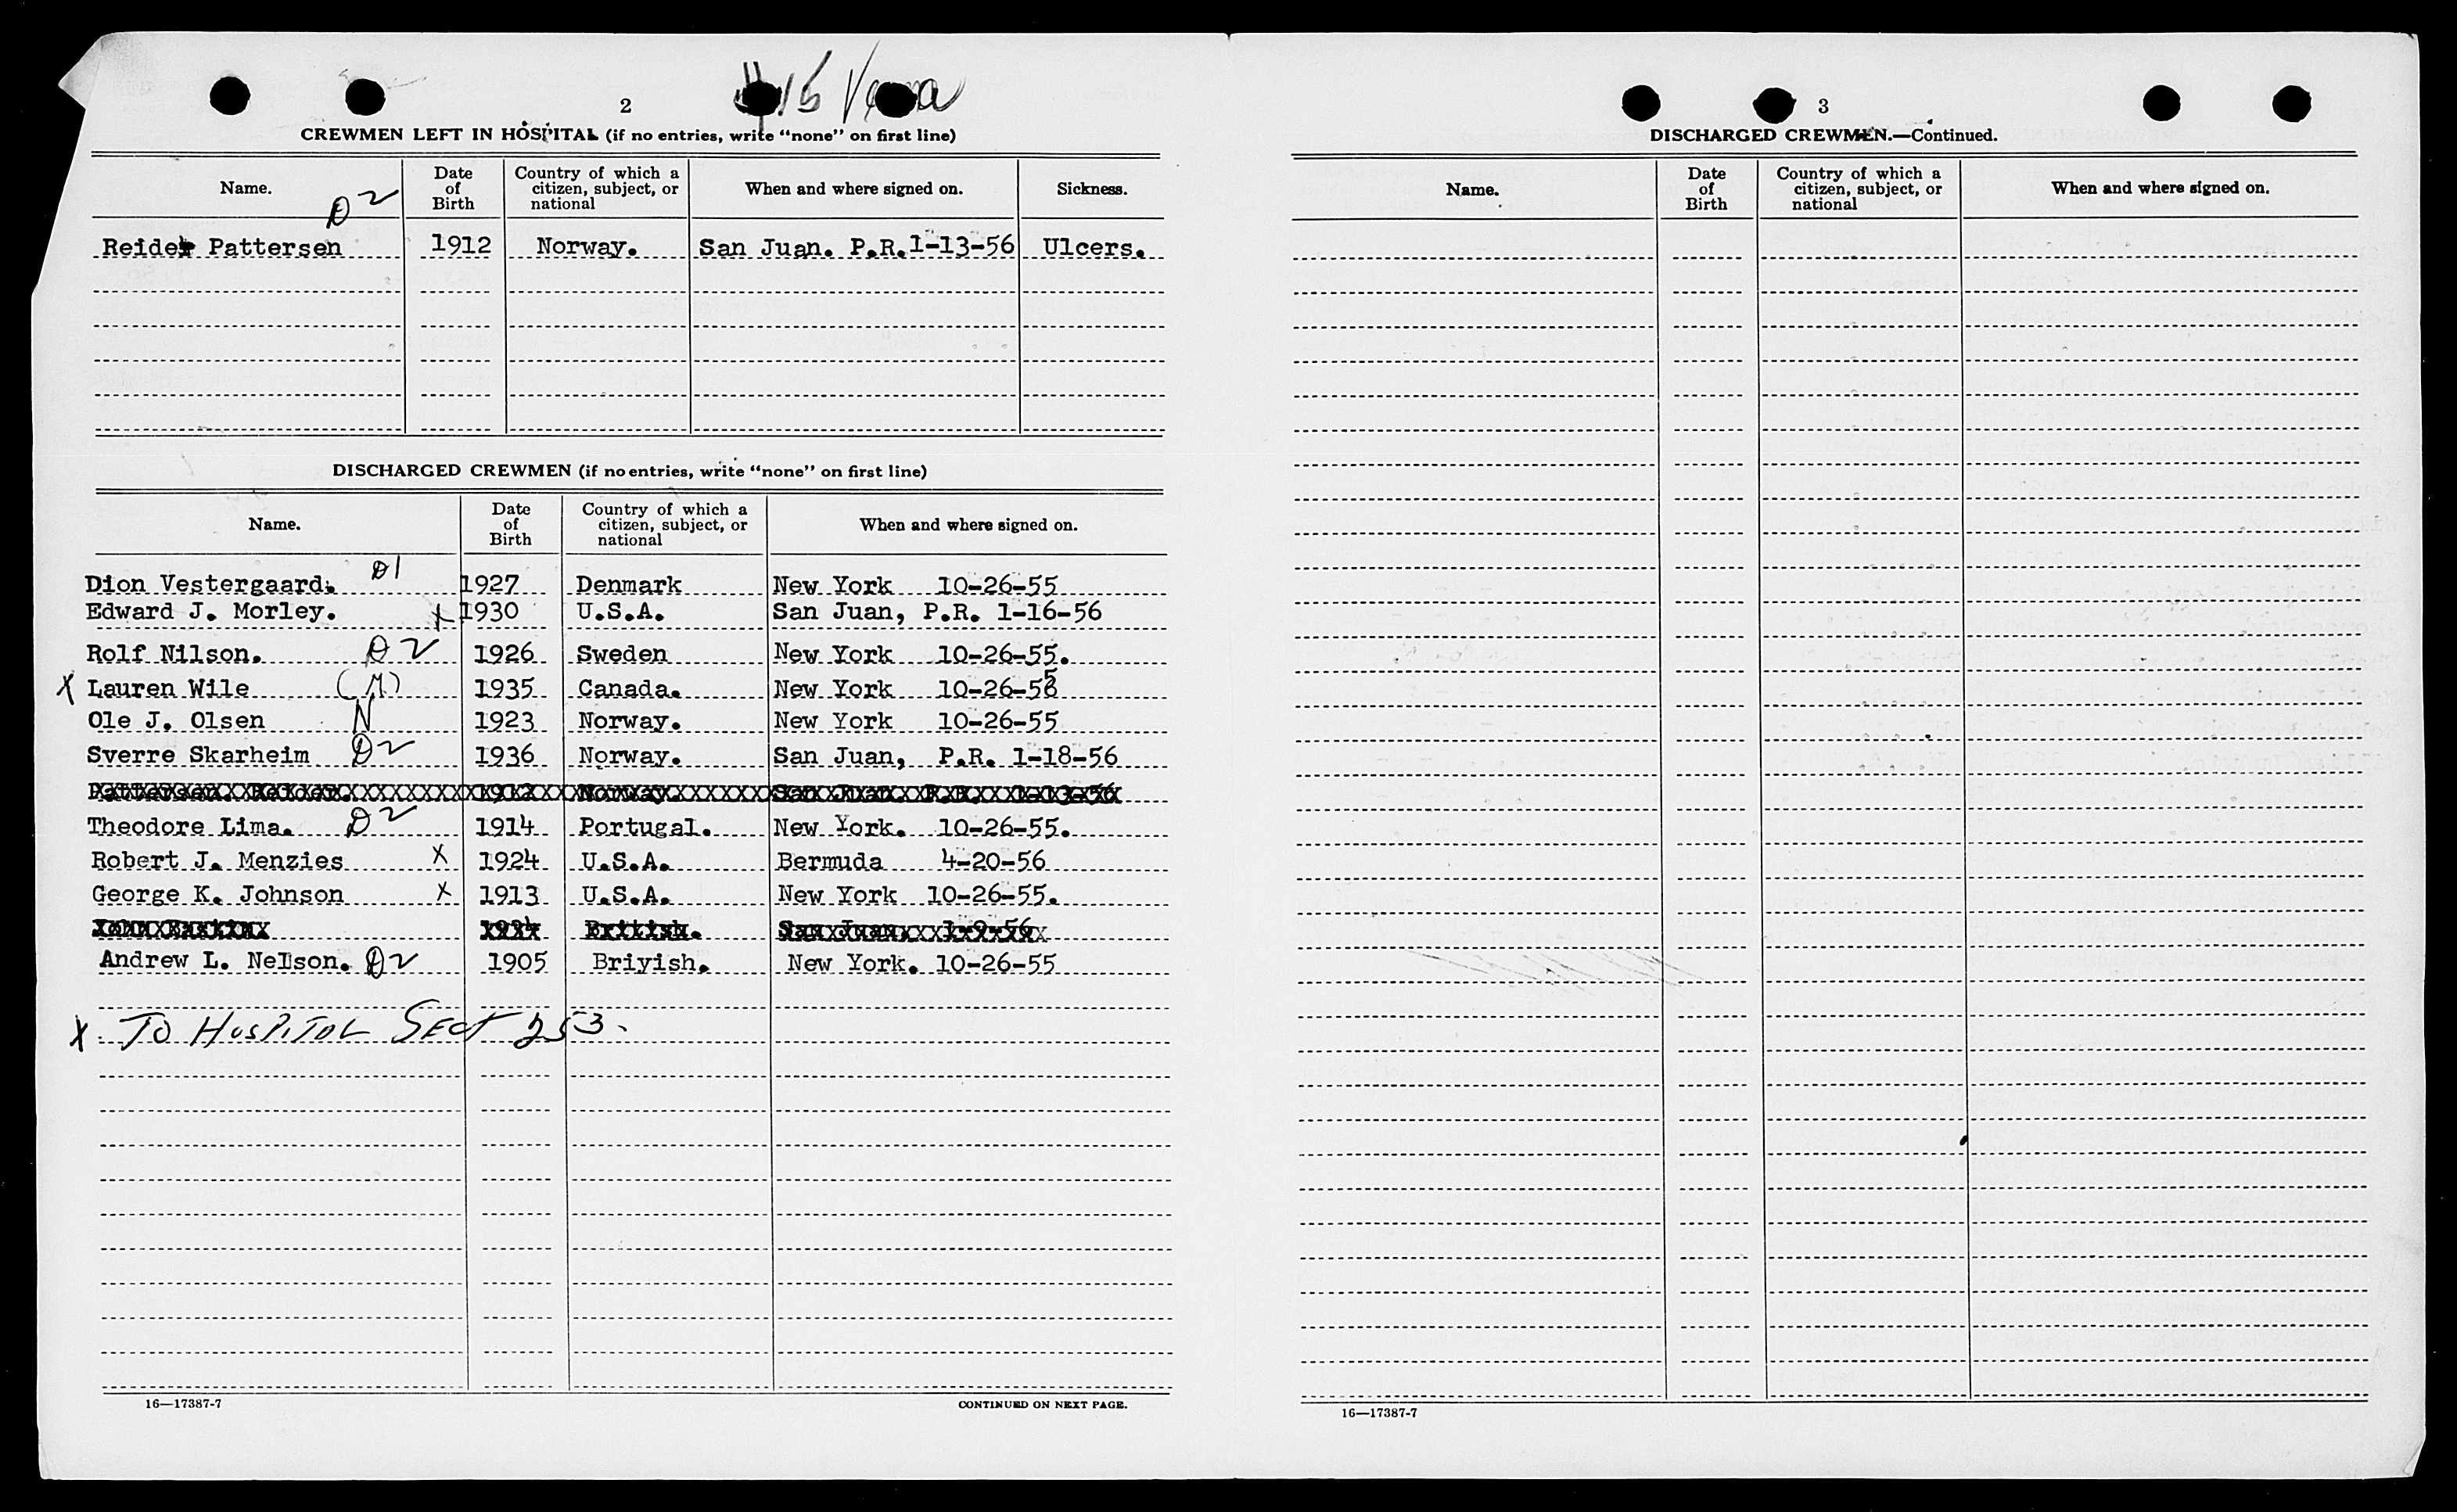 2
CREWMEN LEFT IN HOSPITAL (if no entries, write “none” on first line)
Name. Date of Birth Country of which a citizen, subject, or national When and where signed on. Sickness.
D2
Reider Pattersen 1912 Norway. San Juan. P.R. 1-13-56 Ulcers.
DISCHARGED CREWMEN (if no entries, write “none” on first line)
Name. Date of Birth Country of which a citizen, subject, or national When and where signed on.
Dion Vestergaard. D1 1927 Denmark New York 10-26-55
Edward J. Morley. x 1930 U.S.A. San Juan, P.R. 1-16-56
Rolf Nilson. D2 1926 Sweden New York 10-26-55.
X Lauren Wile (M) 1935 Canada. New York 10-26-55
Ole J. Olsen N 1923 Norway. New York 10-26-55
Sverre Skarheim D2 1936 Norway. San Juan, P.R. 1-18-56
Pattersen. Reider. 1912 Norway. San Juan. P.R. 1-13-56
Theodore Lima. D2 1914 Portugal. New York. 10-26-55.
Robert J. Menzies X 1924 U.S.A. Bermuda 4-20-56
George K. Johnson X 1913 U.S.A. New York 10-26-55.
1934 British. San Juan. 1-9-56
Andrew L. Nelson. D2 1905 Briyish. New York. 10-26-55
X. TO HOSPITAL SECT 253.
16—17387-7 CONTINUED ON NEXT PAGE.
3
DISCHARGED CREWMEN.—Continued.
Name. Date of Birth Country of which a citizen, subject, or national When and where signed on.
16—17387-7